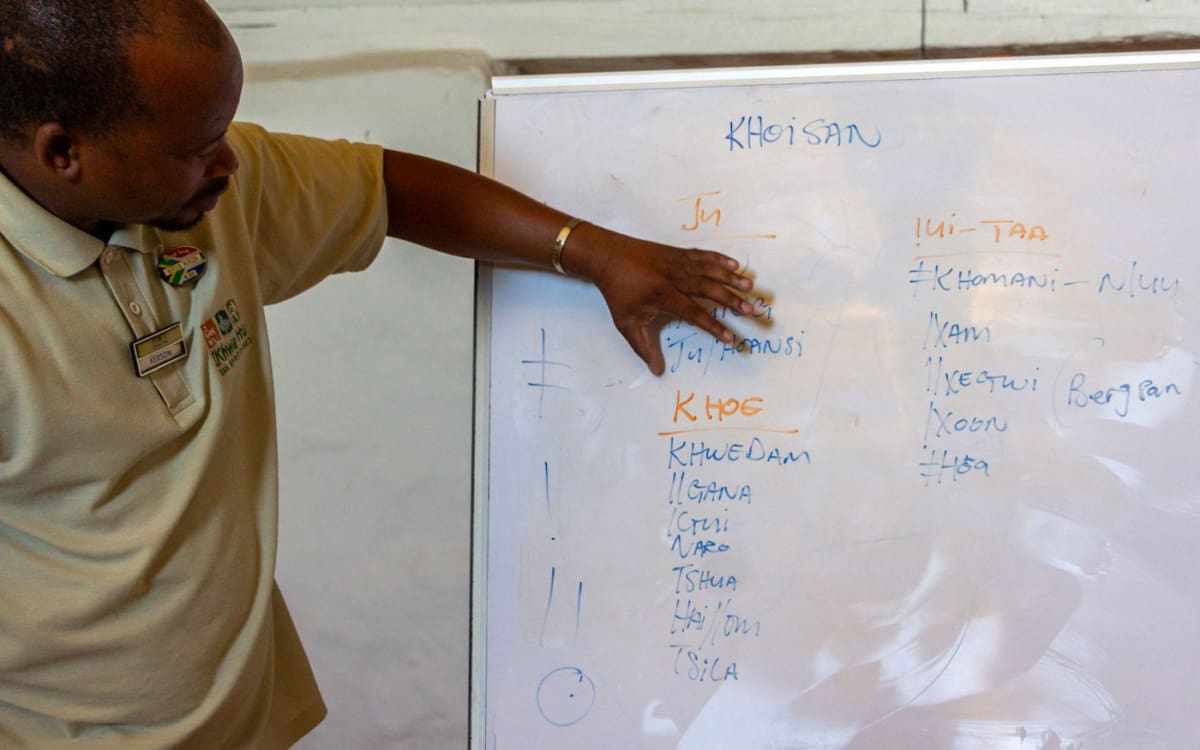 KHOISAN
Ju
Ju/HOANSI
KHOE
KHWEDAM
//GANA
/GUi
NARO
TSHUA
HAi//om
TSiLA
!Ui-TAA
ǂKHOMANi - N/uu
/XAM
//XEGWi (Bergsan
/XOON
ǂHõa
ǂ
!
//
ʘ
KERSON
!Khwa ttu